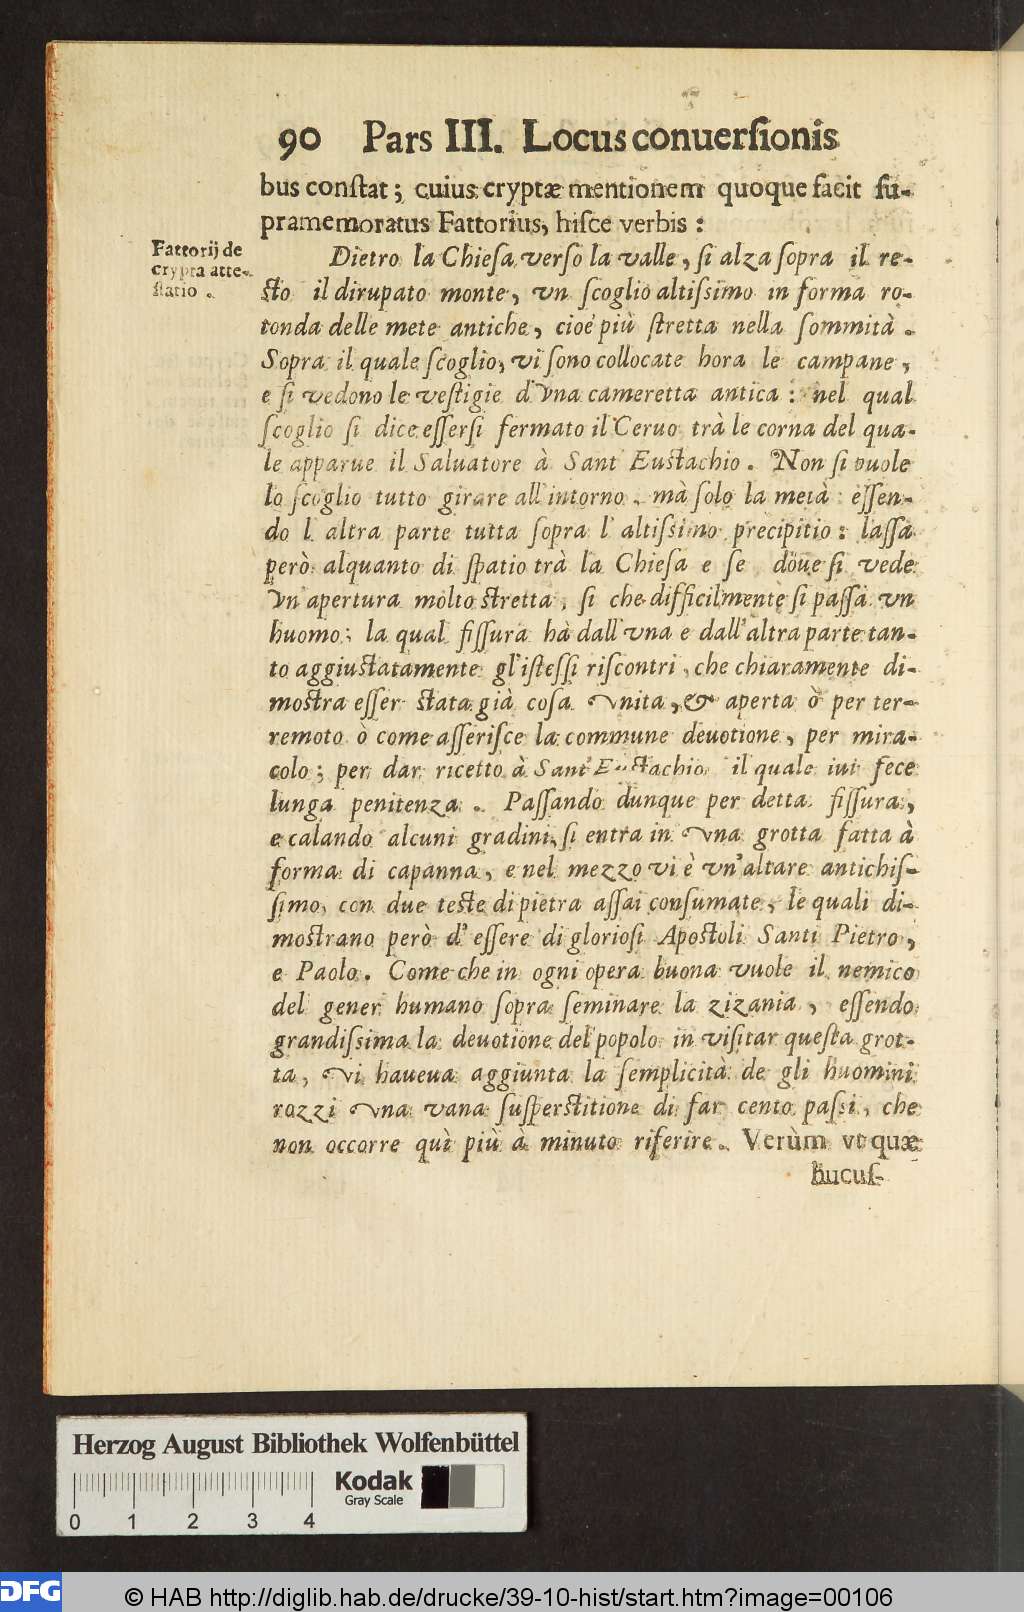 90 Pars III. Locus conuersionis
bus constat; cuius cryptæ mentionem quoque facit su-
pramemoratus Fattorius, hisce verbis:
Fattorij de
crypta atte-
statio.
Dietro la Chiesa verso la valle, si alza sopra il re-
sto il dirupato monte, vn scoglio altissimo in forma ro-
tonda delle mete antiche, cioè più stretta nella sommità.
Sopra il quale scoglio, vi sono collocate hora le campane,
e si vedono le vestigie d'vna cameretta antica: nel qual
scoglio si dice essersi fermato il Ceruo trà le corna del qua-
le apparue il Saluatore à Sant Eustachio. Non si vuole
lo scoglio tutto girare all'intorno, mà solo la metà: essen-
do l altra parte tutta sopra l altissimo precipitio: lassa
però alquanto di spatio trà la Chiesa e se doue si vede
vn apertura molto stretta, si che difficilmente si passa vn
huomo; la qual fissura hà dall'vna e dall'altra parte tan-
to aggiustatamente gl'istessi riscontri, che chiaramente di-
mostra esser stata già cosa vnita, & aperta ò per ter-
remoto ò come asserisce la commune deuotione, per mira-
colo; per dar ricetto à Sant' Eustachio il quale iui fece
lunga penitenza. Passando dunque per detta fissura,
e calando alcuni gradini, si entra in vna grotta fatta à
forma di capanna, e nel mezzo vi è vn'altare antichis-
simo, con due teste di pietra assai consumate, le quali di-
mostrano però d'essere di gloriosi Apostoli Santi Pietro,
e Paolo. Come che in ogni opera buona vuole il nemico
del gener humano sopra seminare la zizania, essendo
grandissima la deuotione del popolo in visitar questa grot-
ta, vi haueua aggiunta la semplicità de gli huomini
rozzi vna vana susperstitione di far cento passi, che
non occorre quì più à minuto riferire. Verùm vt quæ
hucus-
Herzog August Bibliothek Wolfenbüttel
Kodak
Gray Scale
0 1 2 3 4
DFG © HAB http://diglib.hab.de/drucke/39-10-hist/start.htm?image=00106